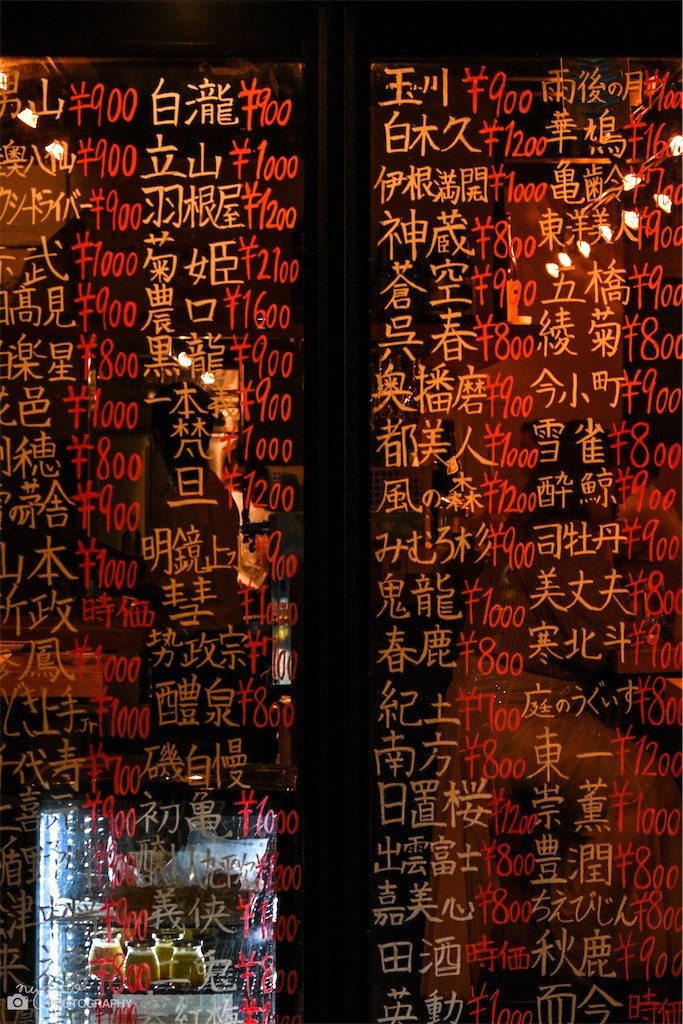 男山 ¥900
八仙 ¥900
クシードライバー ¥900
武 ¥1000
高見 ¥900
楽星 ¥800
花邑 ¥1000
穂 ¥800
¥900
山本 ¥1000
新政 時価
鳳 ¥1000
上手 Jr ¥1000
千代寿 ¥700
¥900
¥900
¥800
白瀧 ¥900
立山 ¥1000
羽根屋 ¥1200
菊姫 ¥2100
農口 ¥1600
黒龍 ¥900
一本義 ¥900
梵 ¥1000
旦 ¥1200
明鏡止水 ¥900
彗 ¥1000
勢政宗
醴泉 ¥800
磯自慢
初亀 ¥1000
醸し人九平次
義侠
玉川 ¥900
白木久 ¥1200
伊根満開 ¥1000
神蔵 ¥800
蒼空 ¥900
呉春 ¥800
奥播磨 ¥900
都美人 ¥1000
風の森 ¥1200
みむろ杉 ¥900
鬼龍 ¥1000
春鹿 ¥800
紀土 ¥700
南方 ¥800
日置桜 ¥1200
出雲富士 ¥800
嘉美心 ¥800
田酒 時価
英勳 ¥1000
雨後の月
華鳩
亀齢 ¥700
東洋美人 ¥900
五橋 ¥900
綾菊 ¥800
今小町 ¥900
雪雀 ¥800
酔鯨 ¥900
司牡丹 ¥900
美丈夫 ¥800
寒北斗 ¥900
庭のうぐいす ¥800
東一 ¥1200
崇薫 ¥1000
豊潤 ¥800
ちえびじん ¥800
秋鹿 ¥900
而今
PHOTOGRAPHY